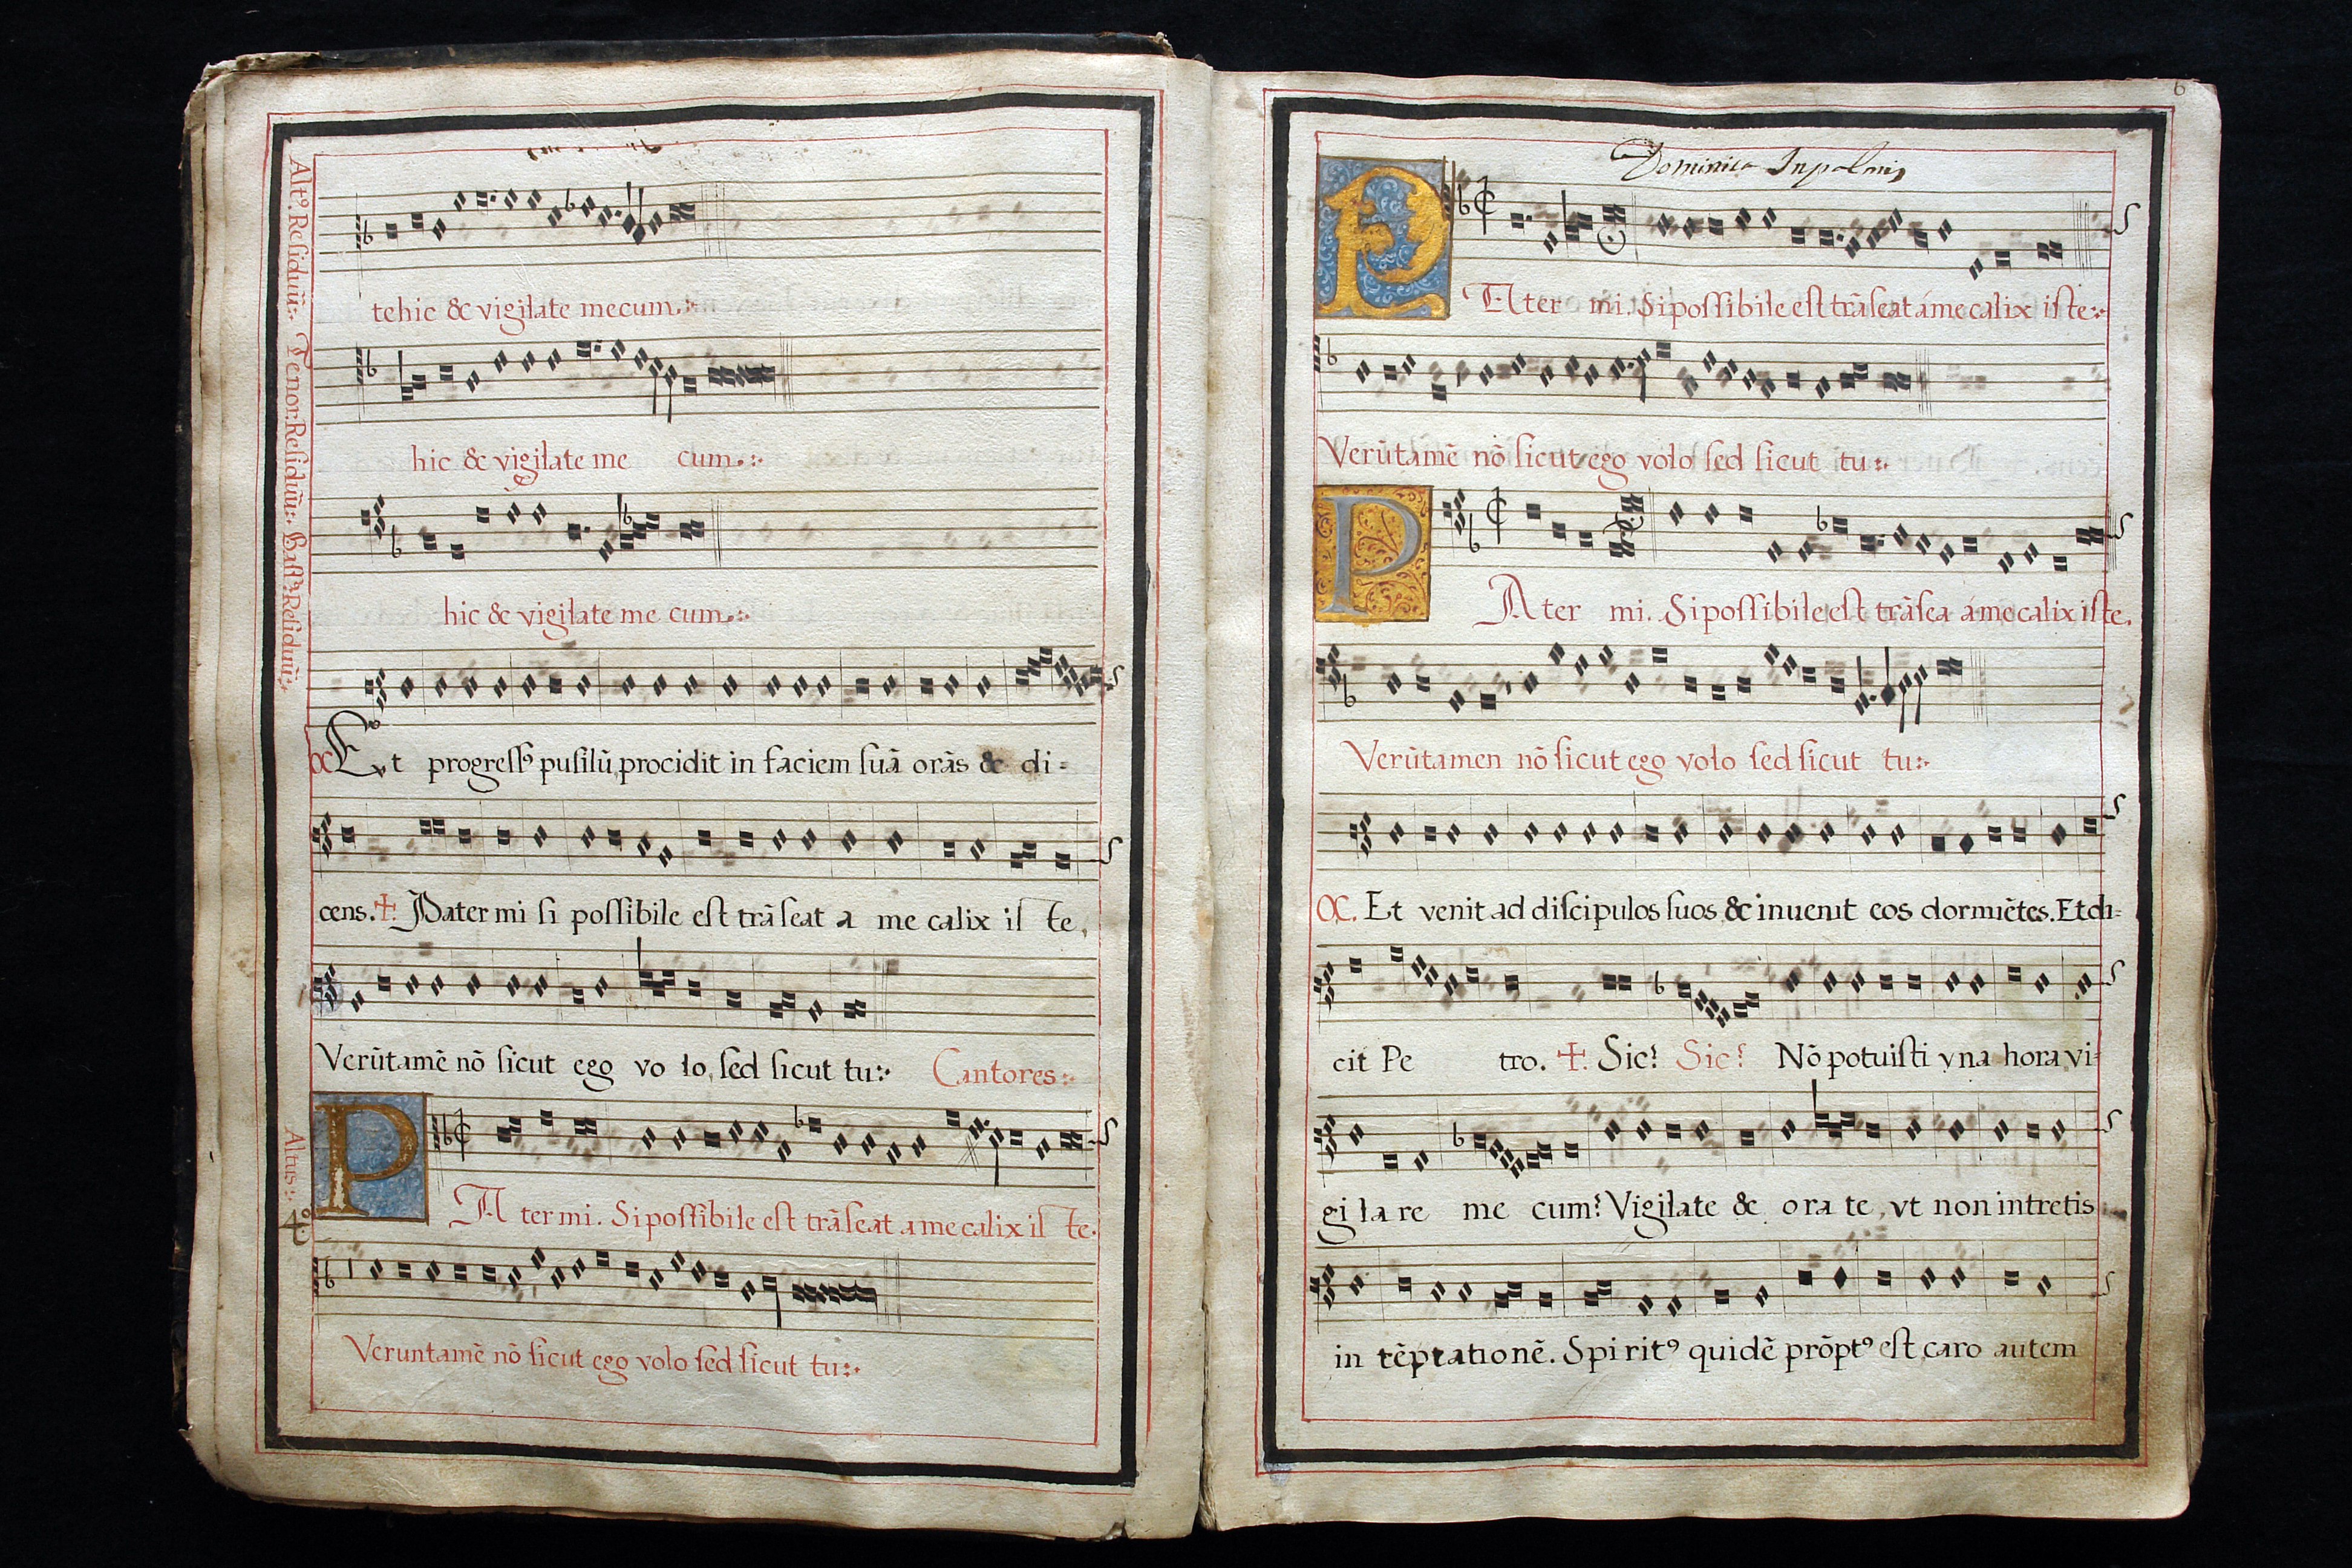 Altꝰ. Residuũ:.
tehic & vigilate mecum.:.
Tenor Residuũ:.
hic & vigilate me cum.:.
Bassꝰ. Residuũ:.
hic & vigilate me cum.:.
Et progressꝰ pusilũ procidit in faciem suã orãs & di=
cens. ✠. Pater mi si possibile est trãseat a me calix is te,
Verũtamẽ nõ sicut ego vo lo, sed sicut tu:. Cantores:.
Altus:.
P Ater mi. Si possibile est trãseat a me calix is te.
4º
Veruntamẽ nõ sicut ego volo sed sicut tu:.
6
Dominica Inpalmis
P Ater mi. Si possibile est trãseat á me calix iste:.
Verũtamẽ nõ sicut ego volo sed sicut tu:.
P Ater mi. Si possibile est trãsea á me calix iste.
Verũtamen nõ sicut ego volo sed sicut tu:.
Et venit ad discipulos suos & inuenit eos dormiẽtes. Et di=
cit Pe tro. ✠. Sic? Sic? Nõ potuisti vna hora vi=
gi la re me cum? Vigilate & ora te, vt non intretis
in tẽptationẽ. Spiritꝰ quidẽ prõptꝰ est, caro autem